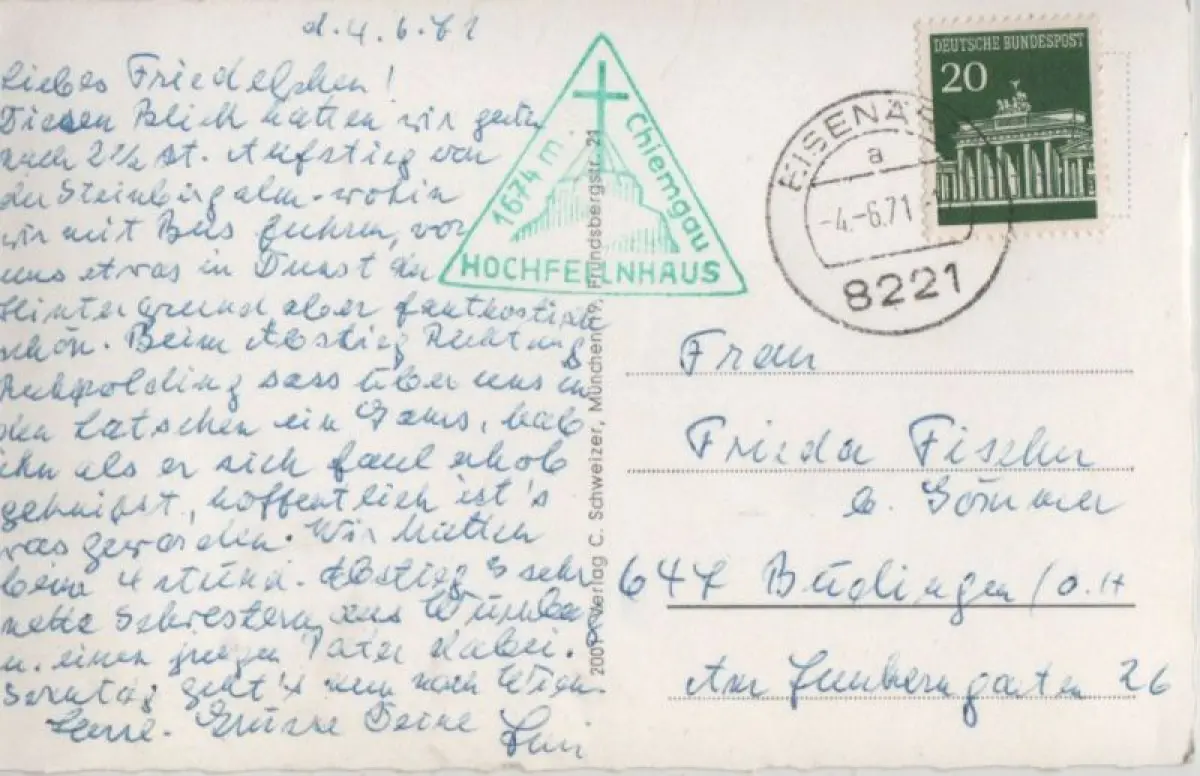 d. 4.6.71
Liebes Friedelchen!
Diesen Blick hatten wir
nach 2½ St. Aufstieg von
der Steinbergalm - wohin
wir mit Bus fuhren, vor
uns etwas in Dunst der
Hintergrund aber fantastisch
schön. Beim Abstieg Richtung
Ruhpolding sass über uns in
den Latschen ein Gams, hab
ihn als er sich faul erhob
geknipst, hoffentlich ist's
was geworden. Wir hatten
beim 4 stünd. Abstieg 3 sehr
nette Schwestern aus
u. einen jungen Pater dabei.
Sonntag geht's nun nach Wien.
Grüsse Deine
1674 m Chiemgau
HOCHFELLNHAUS
2001 Verlag C. Schweizer, München 19, Frundsbergstr. 21
DEUTSCHE BUNDESPOST
20
EISENÄ
a
-4.-6.71
8221
Frau
Frieda Fischer
b. Sömmer
647 Büdingen/O.H
Am 26